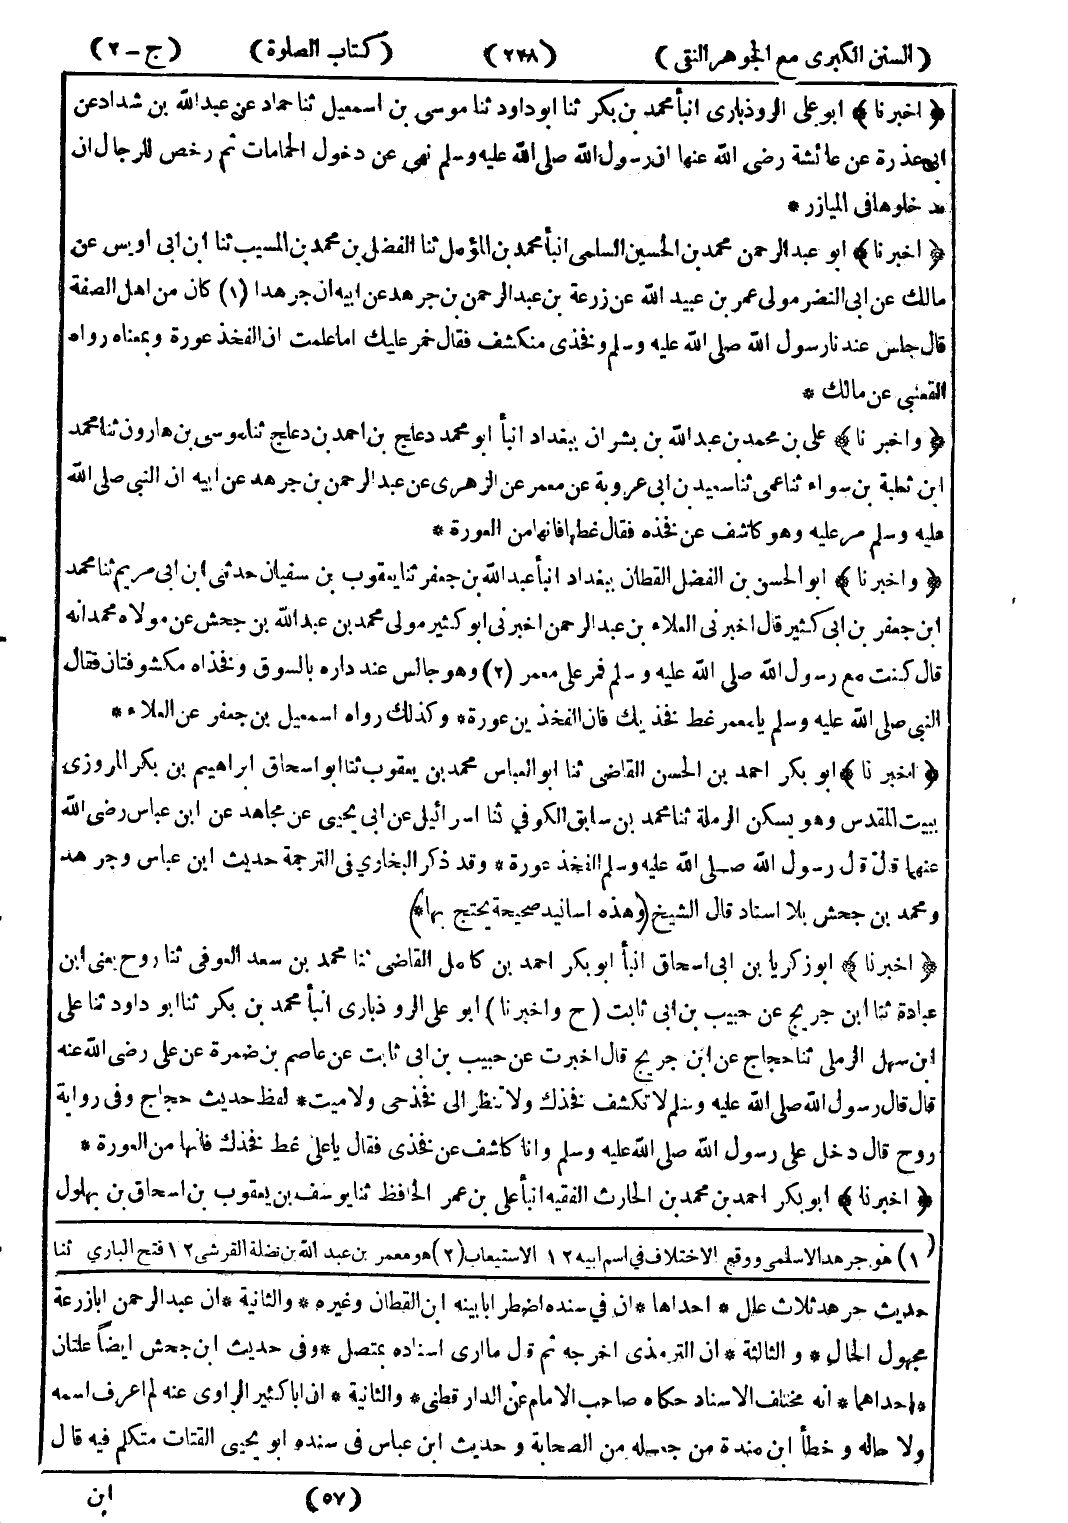 (السنن الكبرى مع الجوهر النقى) (٢٢٨) (كتاب الصلوة) (ج - ٢)
﴿ اخبرنا ﴾ ابو على الروذبارى انبأ محمد بن بكر ثنا ابو داود ثنا موسى بن اسمعيل ثنا حماد عن عبد الله بن شداد عن
ابى عذرة عن عائشة رضى الله عنها ان رسول الله صلى الله عليه وسلم نهى عن دخول الحمامات ثم رخص للرجال ان
يد خلوها فى الميازر *
﴿ اخبر نا ﴾ ابو عبد الرحمن محمد بن الحسين السلمى انبأ محمد بن المؤمل ثنا الفضل بن محمد بن المسيب ثنا ابن ابى اويس عن
مالك عن ابى النضر مولى عمر بن عبيد الله عن زرعة بن عبد الرحمن بن جرهد عن ابيه ان جرهدا (١) كان من اهل الصفة
قال جلس عند نا رسول الله صلى الله عليه وسلم وفخذى منكشف فقال خمر عليك اما علمت ان الفخذ عورة وبمعناه رواه
القعنبى عن مالك *
﴿ واخبر نا ﴾ على بن محمد بن عبد الله بن بشر ان ببغداد انبأ ابو محمد دعلج بن احمد بن دعلج ثنا موسى بن هارون ثنا محمد
ابن ثعلبة بن سواء ثنا عمى ثنا سعيد بن ابى عروبة عن معمر عن الزهرى عن عبد الرحمن بن جرهد عن ابيه ان النبى صلى الله
عليه وسلم مر عليه وهو كاشف عن فخذه فقال غطها فانها من العورة *
﴿ واخبرنا ﴾ ابو الحسن بن الفضل القطان ببغداد انبأ عبد الله بن جعفر ثنا يعقوب بن سفيان حدثنى ابن ابى مريم ثنا محمد
ابن جعفر بن ابى كثير قال اخبرنى العلاء بن عبد الرحمن اخبرنى ابو كثير مولى محمد بن عبد الله بن جحش عن مولاه محمد انه
قال كنت مع رسول الله صلى الله عليه وسلم فمر على معمر (٢) وهو جالس عند داره بالسوق وفخذاه مكشوفتان فقال
النبى صلى الله عليه وسلم يا معمر غط فخذ يك فان الفخذ ين عورة* وكذلك رواه اسمعيل بن جعفر عن العلاء *
﴿ اخبر نا ﴾ ابو بكر احمد بن الحسن القاضى ثنا ابو العباس محمد بن يعقوب ثنا ابو اسحاق ابراهيم بن بكر المروزى
ببيت المقدس وهو يسكن الرملة ثنا محمد بن سابق الكوفي ثنا اسرائيل عن ابى يحيى عن مجاهد عن ابن عباس رضى الله
عنهما قال قال رسول الله صلى الله عليه وسلم الفخذ عورة* وقد ذكر البخاري فى الترجمة حديث ابن عباس وجرهد
ومحمد بن جحش بلا اسناد قال الشيخ (وهذه اسانيد صحيحة يحتج بها*)
﴿ اخبرنا ﴾ ابو زكريا بن ابى اسحاق انبأ ابو بكر احمد بن كامل القاضى ثنا محمد بن سعد العوفى ثنا روح يعنى ابن
عبادة ثنا ابن جريج عن حبيب بن ابى ثابت (ح واخبرنا) ابو على الروذبارى انبأ محمد بن بكر ثنا ابو داود ثنا على
ابن سهل الرملى ثنا حجاج عن ابن جريج قال اخبرت عن حبيب بن ابى ثابت عن عاصم بن ضمرة عن على رضى الله عنه
قال قال رسول الله صلى الله عليه وسلم لا تكشف فخذك ولا تنظر الى فخذ حى ولا ميت* لفظ حديث حجاج وفى رواية
روح قال دخل على رسول الله صلى الله عليه وسلم وانا كاشف عن فخذى فقال يا على غط فخذك فانها من العورة *
﴿ اخبرنا ﴾ ابو بكر احمد بن محمد بن الحارث الفقيه انبأ على بن عمر الحافظ ثنا يوسف بن يعقوب بن اسحاق بن بهلول
(١) هو جرهد الاسلمى ووقع الاختلاف فى اسم ابيه ١٢ الاستيعاب (٢) هو معمر بن عبد الله بن نضلة القرشى ١٢ فتح الباري ثنا
حديث جرهد ثلاث علل * احداها * ان في سنده اضطرابا بينه ابن القطان وغيره * والثانية * ان عبد الرحمن ابا زرعة
مجهول الحال * و الثالثة * ان الترمذى اخرجه ثم قال ما ارى اسناده بمتصل * وفى حديث ابن جحش ايضاً علتان
*احداهما * انه مختلف الاسناد حكاه صاحب الامام عن الدار قطنى * والثانية * ان ابا كثير الراوى عنه لم اعرف اسمه
ولا حاله و خطأ ابن مندة من جعله من الصحابة و حديث ابن عباس فى سنده ابو يحيى القتات متكلم فيه قال
(٥٧) ابن